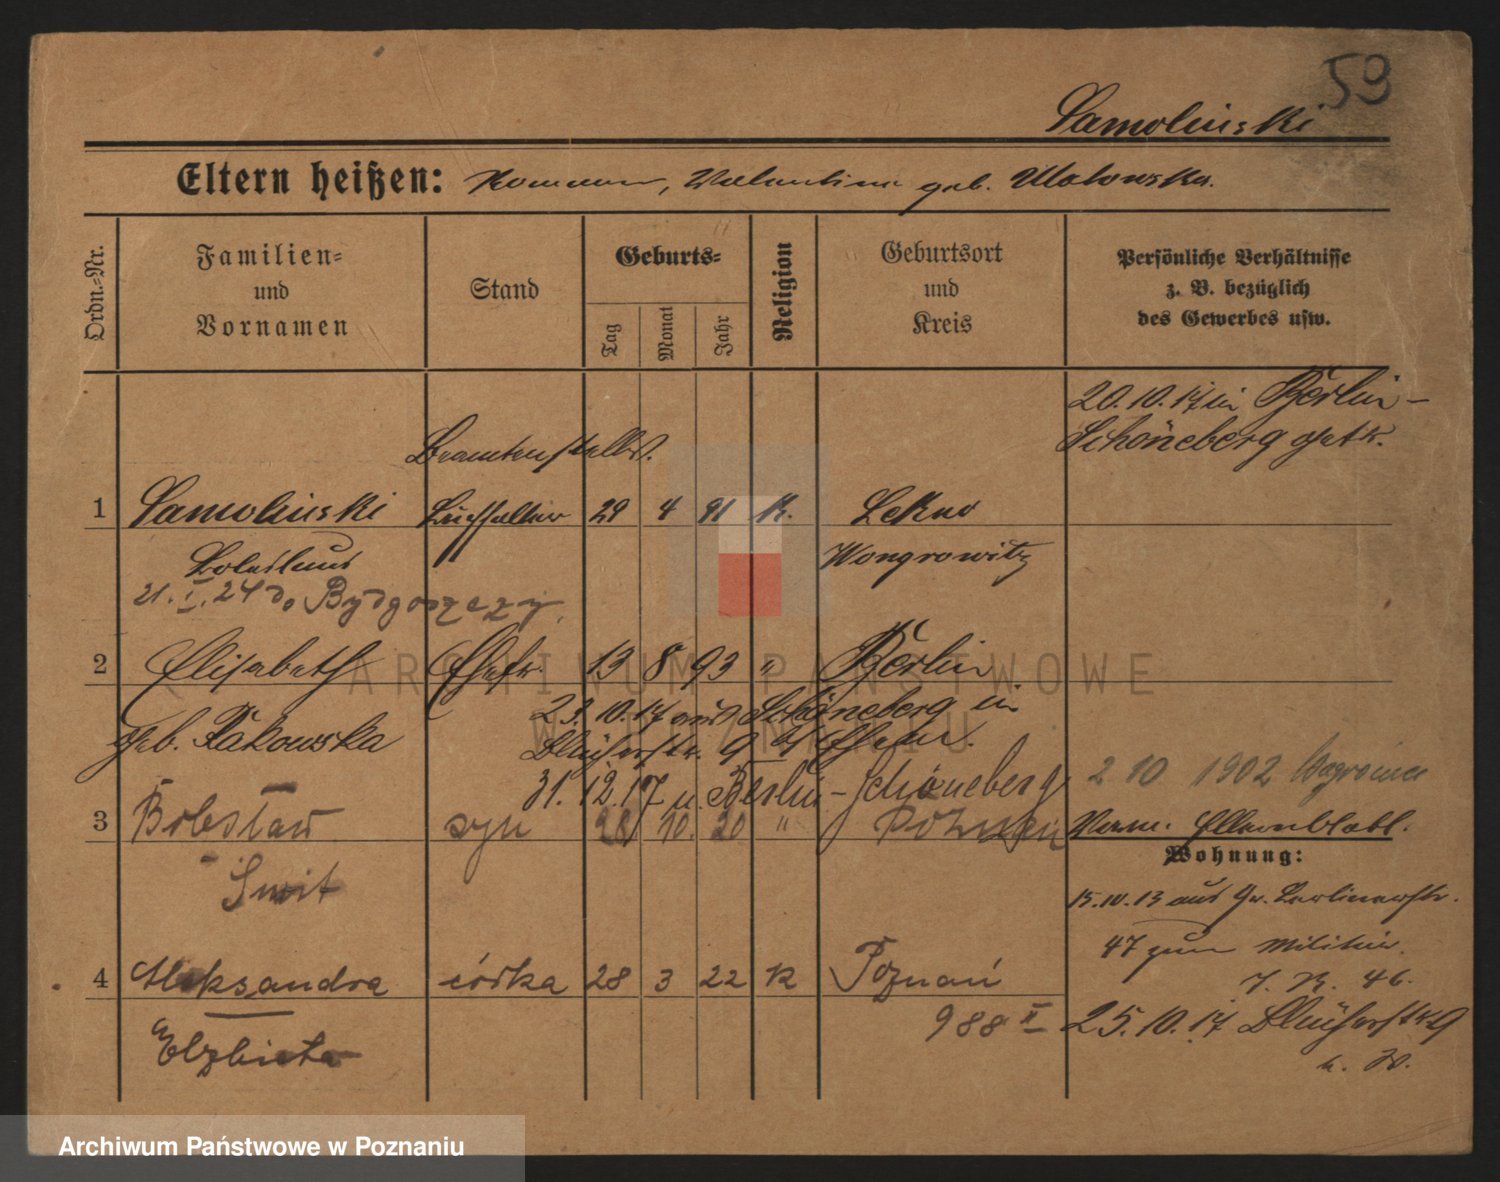 59
Samolinski
Eltern heißen: Roman, Valentina geb. Matowska.
Ordn.-Nr.
Familien-
und
Vornamen
Stand
Geburts-
Tag
Monat
Jahr
Religion
Geburtsort
und
Kreis
Persönliche Verhältnisse
z. B. bezüglich
des Gewerbes usw.
20.10.17 in Berlin-
Schöneberg getr.
1 Samolinski Buchhalter 29 4 91 K. Lekno
Boleslaus Wongrowitz
21. I. 24 do Bydgoszczy.
2 Elisabeth Ehefr. 13 8 93 " Berlin
geb. Pakowska
23.10.17 aus Schöneberg in
Blücherstr. 9
31.12.17 n. Berlin-Schöneberg
2 10 1902
3 Bolesław syn 28 10. 20 " Poznań
Wohnung:
15.10.13 aus Gr. Berlinerstr.
47 zum Militär.
J. R. 46.
4 Aleksandra córka 28 3 22 K Poznań
Elżbieta
988 II
25.10.17 Blücherstr 9
ARCHIWUM PAŃSTWOWE
W POZNANIU
Archiwum Państwowe w Poznaniu